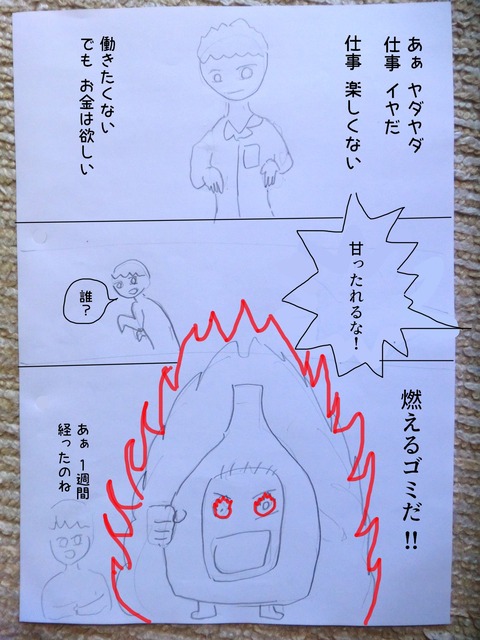 あぁ ヤダヤダ
仕事 イヤだ
仕事 楽しくない
働きたくない
でも お金は欲しい
甘ったれるな！
誰？
燃えるゴミだ!!
あぁ 1週間
経ったのね